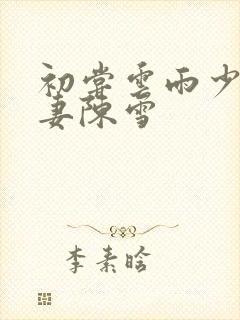 初尝雲雨少
妻陳雪
李素晗